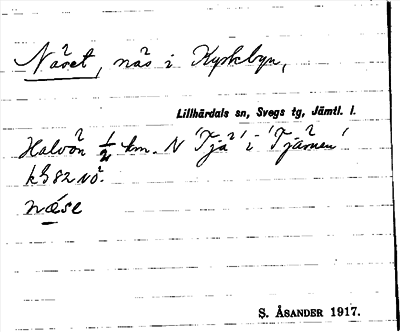 Näset, näs i Kyrkbyn,
Lillhärdals sn, Svegs tg, Jämtl. l.
Halvön ½ km. N 'Tjä' i 'Tjärnen'
kB 82 NÖ.
næse
S. ÅSANDER 1917.